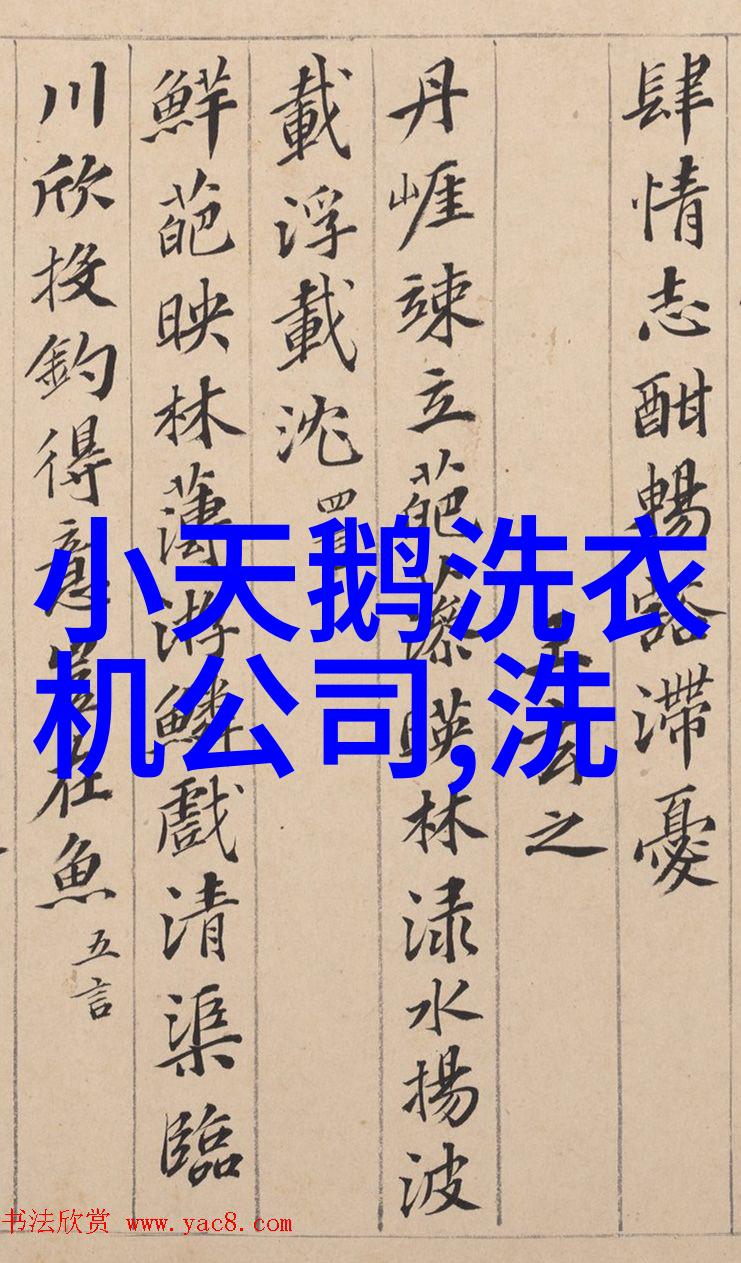 肆情志酣暢豁滯憂
王玄之
丹崕竦立葩藻暎林渌水揚波
載浮載沈 四言
鮮葩映林薄游鱗戲清渠臨
川欣投釣得意豈在魚 五言
小天鹅洗衣
机公司,洗
书法欣赏 www.yac8.com